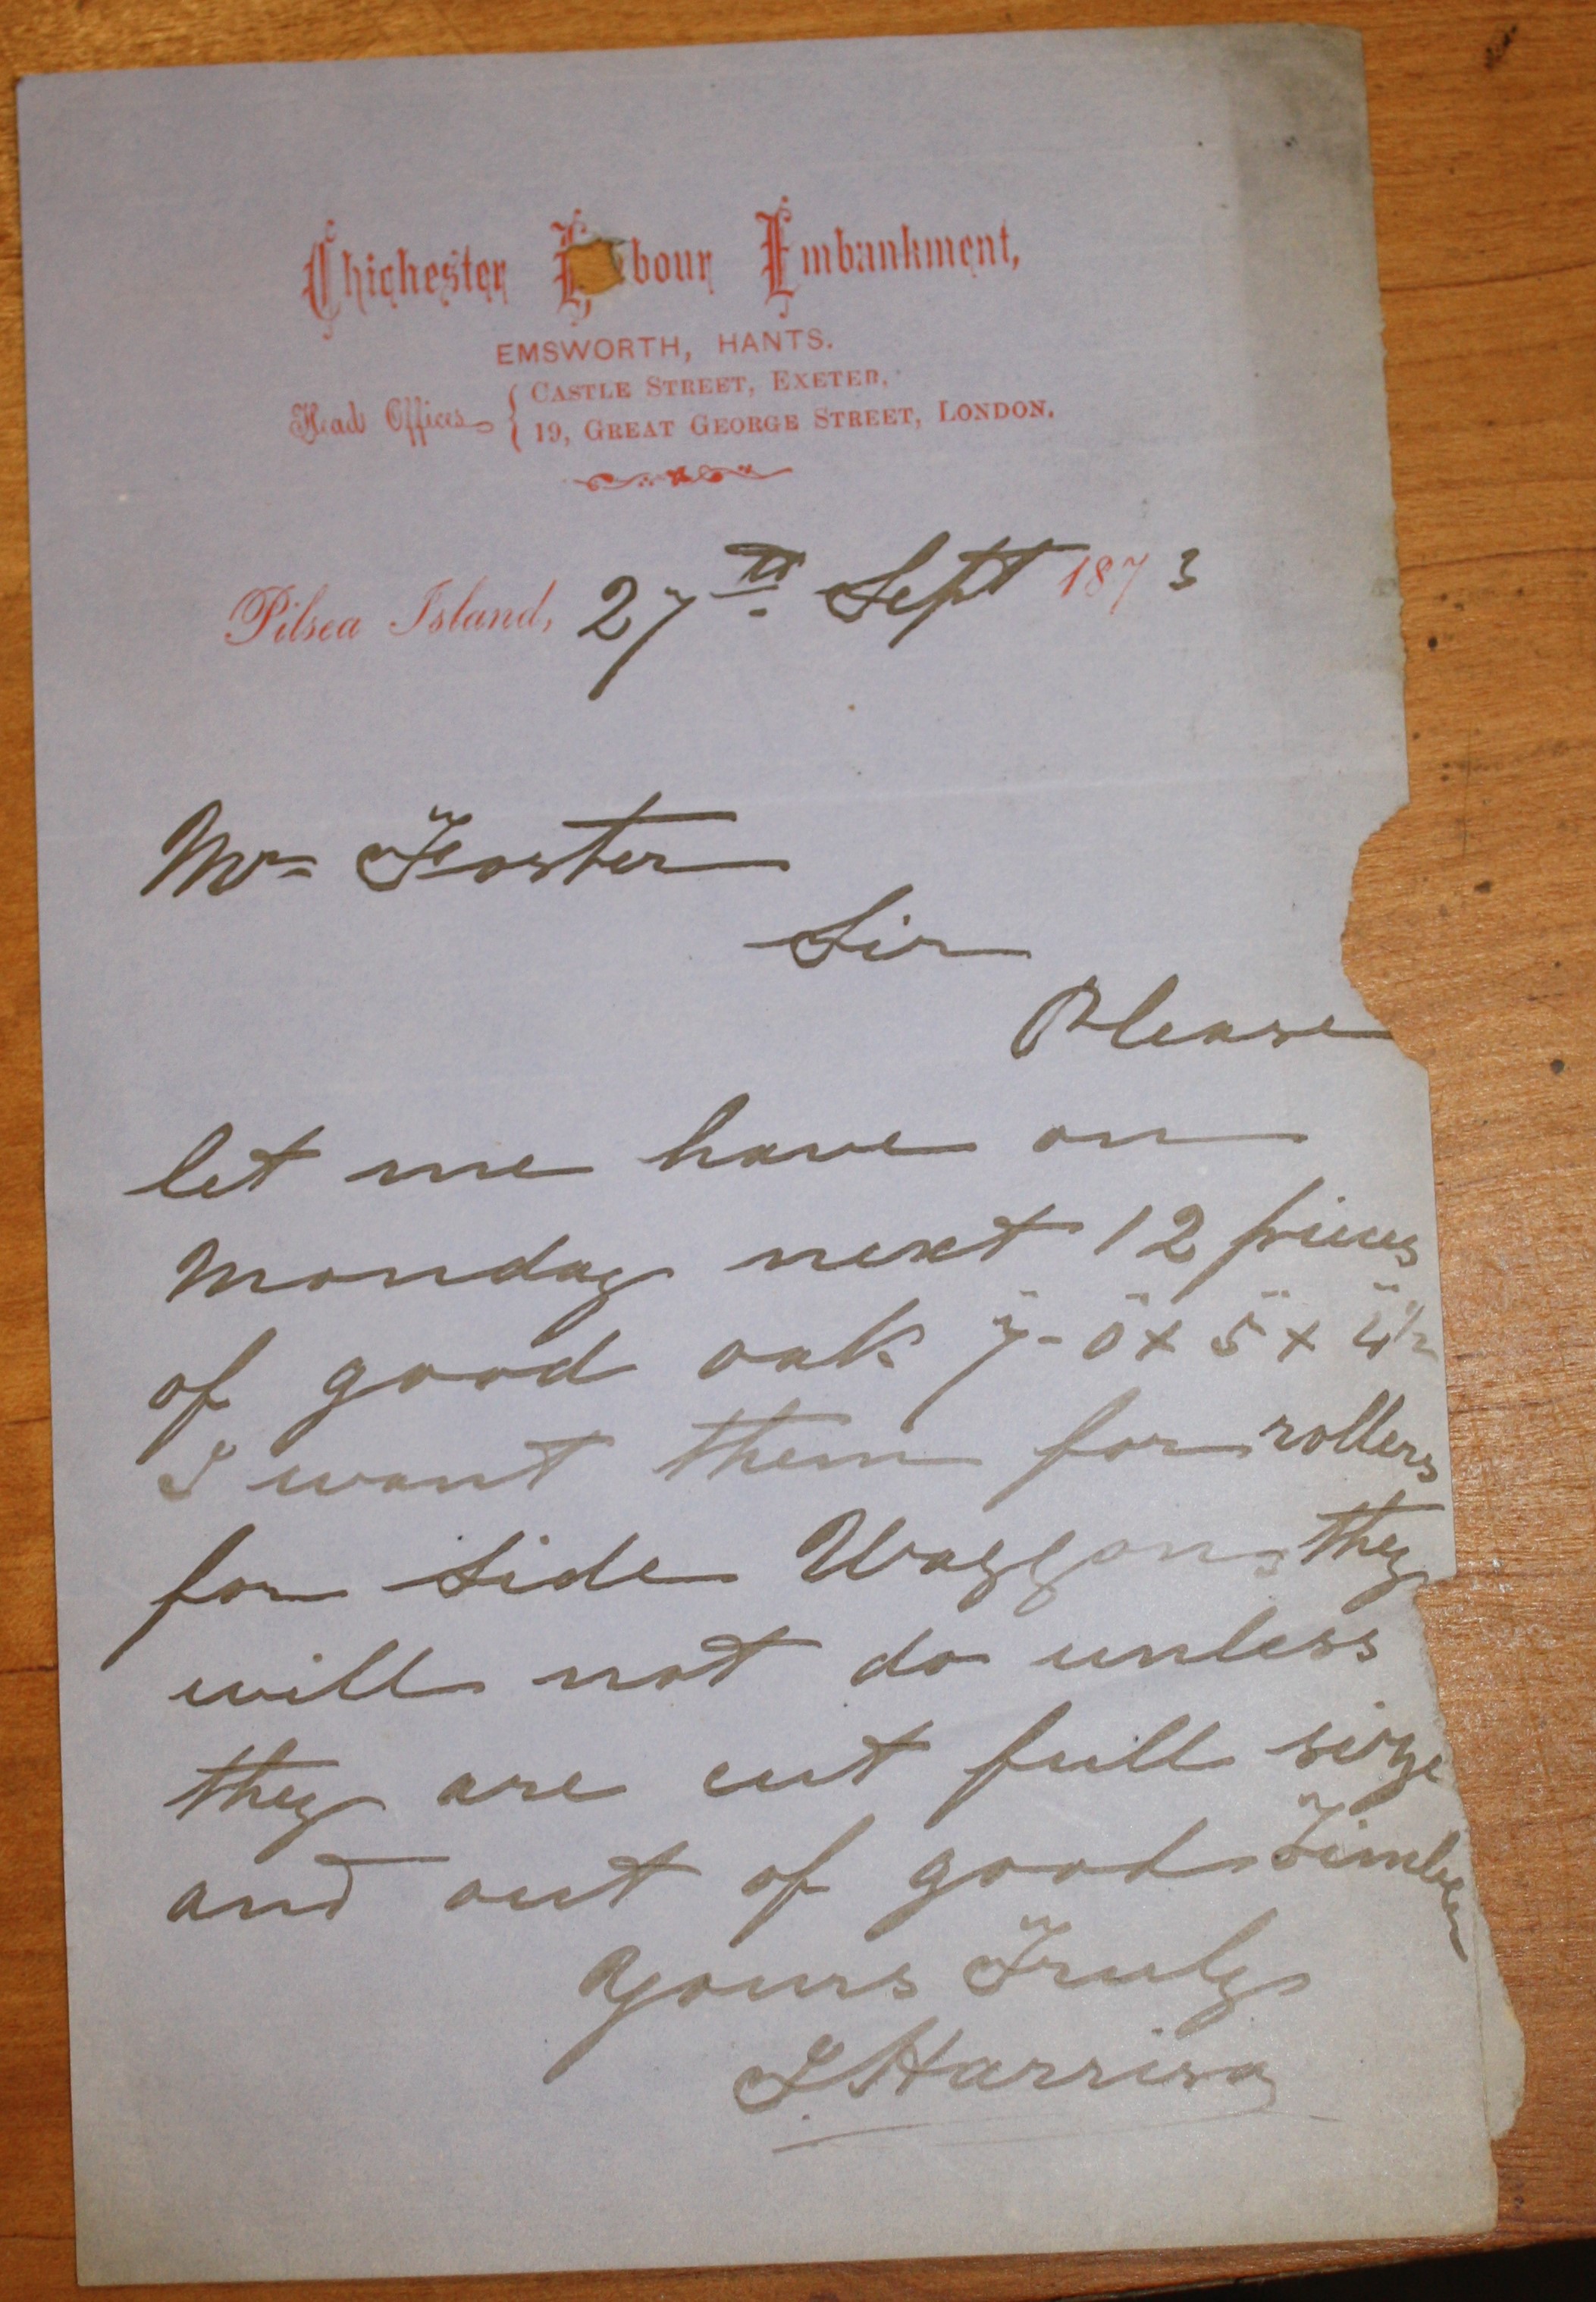 Chichester H bour Embankment,
EMSWORTH, HANTS.
Head Offices { CASTLE STREET, EXETER,
19, GREAT GEORGE STREET, LONDON.
Pilsea Island, 27th Sept 1873
Mr Foster
Sir
Please
let me have on
Monday next 12 pieces
of good oak 7'-0" x 5" x 4"1/2
I want them for rollers
for Side Waggons they
will not do unless
they are cut full size
and out of good Timber
Yours Truly
Harrison